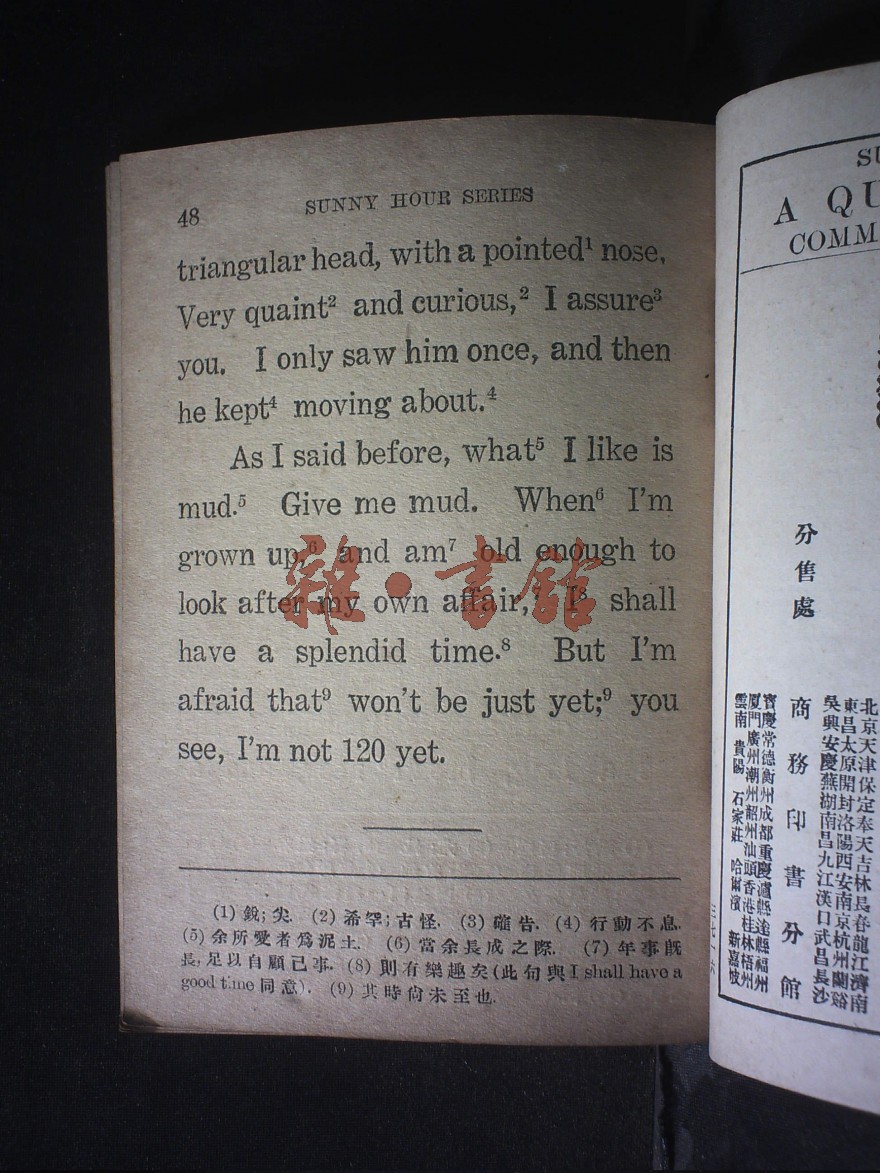 48
SUNNY HOUR SERIES
triangular head, with a pointed¹ nose,
Very quaint² and curious,² I assure³
you. I only saw him once, and then
he kept⁴ moving about.⁴
As I said before, what⁵ I like is
mud.⁵ Give me mud. When⁶ I'm
grown up,⁶ and am⁷ old enough to
look after my own affair,⁷ I⁸ shall
have a splendid time.⁸ But I'm
afraid that⁹ won't be just yet;⁹ you
see, I'm not 120 yet.
(1) 銳; 尖. (2) 希罕; 古怪. (3) 確告. (4) 行動不息.
(5) 余所愛者爲泥土. (6) 當余長成之際. (7) 年事旣
長, 足以自顧己事. (8) 則有樂趣矣 (此句與 I shall have a
good time 同意). (9) 其時尙未至也.
雜·書館
SU
A QU
COMM
分售處
商務印書分館
北京天津保定奉天吉林長春龍江濟南
東昌太原開封洛陽西安南京杭州蘭谿
吳興安慶蕪湖南昌九江漢口武昌長沙
寶慶常德衡州成都重慶瀘縣達縣福州
厦門廣州潮州韶州汕頭香港桂林梧州
雲南 貴陽 石家莊 哈爾濱 新嘉坡